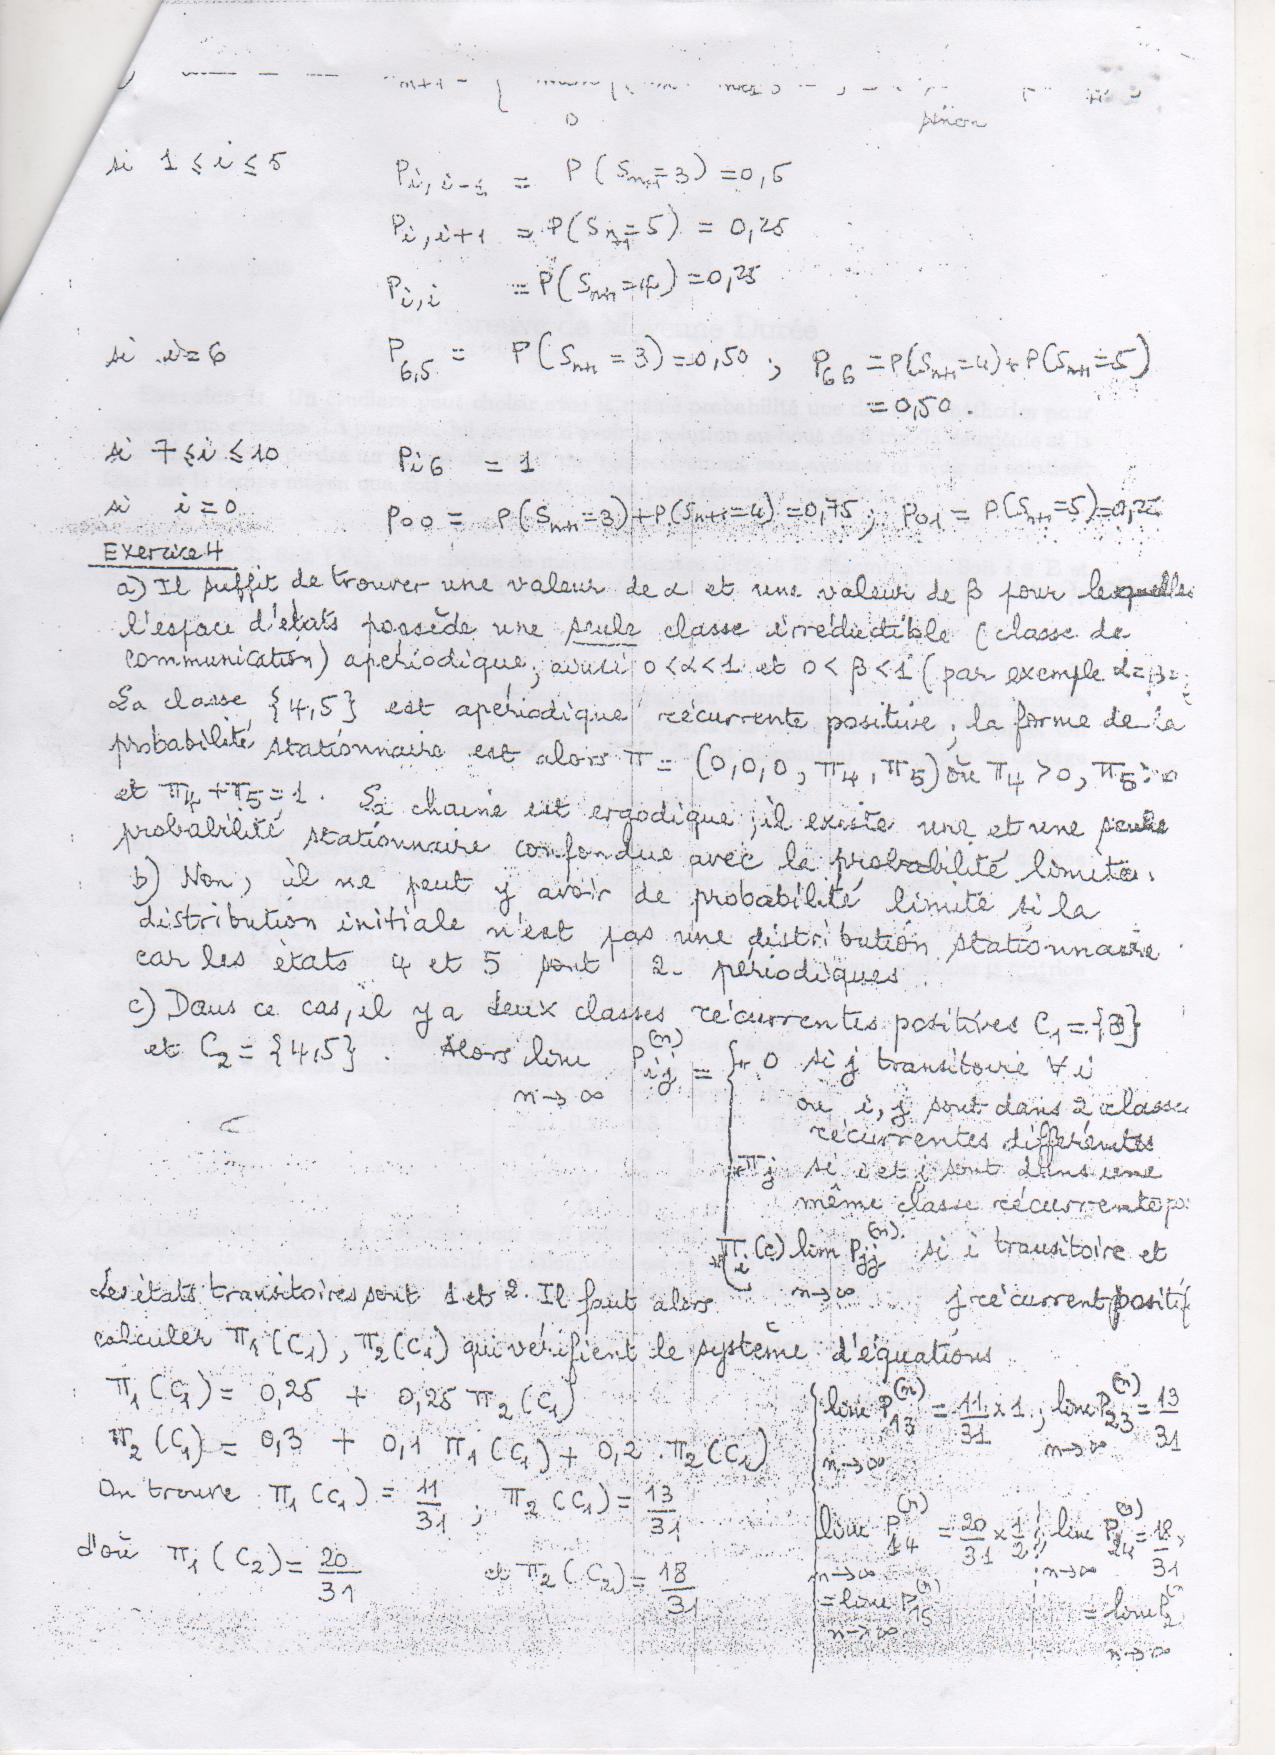 sinon
0
si 1 ≤ i ≤ 5 P_{i,i-1} = P(S_{n+1}=3)=0,5
P_{i,i+1} = P(S_{n+1}=5) = 0,25
P_{i,i} = P(S_{n+1}=4)=0,25
si i=6 P_{6,5} = P(S_{n+1}=3)=0,50 ; P_{66} = P(S_{n+1}=4)+P(S_{n+1}=5)
=0,50
si 7≤i≤10 P_{i6} = 1
si i=0 P_{00} = P(S_{n+1}=3)+P(S_{n+1}=4)=0,75 ; P_{01} = P(S_{n+1}=5)=0,25
Exercice 4
a) Il suffit de trouver une valeur de α et une valeur de β pour lesquelles
l'espace d'états possède une seule classe irréductible (classe de
communication) apériodique, aussi 0<α<1 et 0<β<1 (par exemple α=β=
La classe {4,5} est apériodique récurrente positive ; la forme de la
probabilité stationnaire est alors π = (0,0,0, π_4, π_5) où π_4 >0, π_5>0
et π_4+π_5=1. La chaine est ergodique ; il existe une et une seule
probabilité stationnaire confondue avec la probabilité limite.
b) Non, il ne peut y avoir de probabilité limite si la
distribution initiale n'est pas une distribution stationnaire
car les états 4 et 5 sont 2-périodiques.
c) Dans ce cas, il y a deux classes récurrentes positives C_1={3}
et C_2={4,5}. Alors lim_{n→∞} P_{ij}^{(n)} = { 0 si j transitoire ∀i
ou i,j sont dans 2 classes
récurrentes différentes
π_j si i et j sont dans une
même classe récurrente po
π_i(c) lim_{n→∞} P_{jj}^{(n)} si i transitoire et
j récurrent positif
Les états transitoires sont 1 et 2. Il faut alors
calculer π_1(C_1), π_2(C_1) qui vérifient le système d'équations
π_1(C_1) = 0,25 + 0,25 π_2(C_1)
π_2(C_1) = 0,3 + 0,1 π_1(C_1) + 0,2 π_2(C_1)
On trouve π_1(C_1) = 11/31 ; π_2(C_1) = 13/31
d'où π_1(C_2) = 20/31 et π_2(C_2) = 18/31
lim_{n→∞} P_{13}^{(n)} = 11/31 × 1 ; lim_{n→∞} P_{23}^{(n)} = 13/31
lim_{n→∞} P_{14}^{(n)} = 20/31 × 1/2 ; lim_{n→∞} P_{24}^{(n)} = 18/31
= lim_{n→∞} P_{15}^{(n)} = lim_{n→∞} P_2